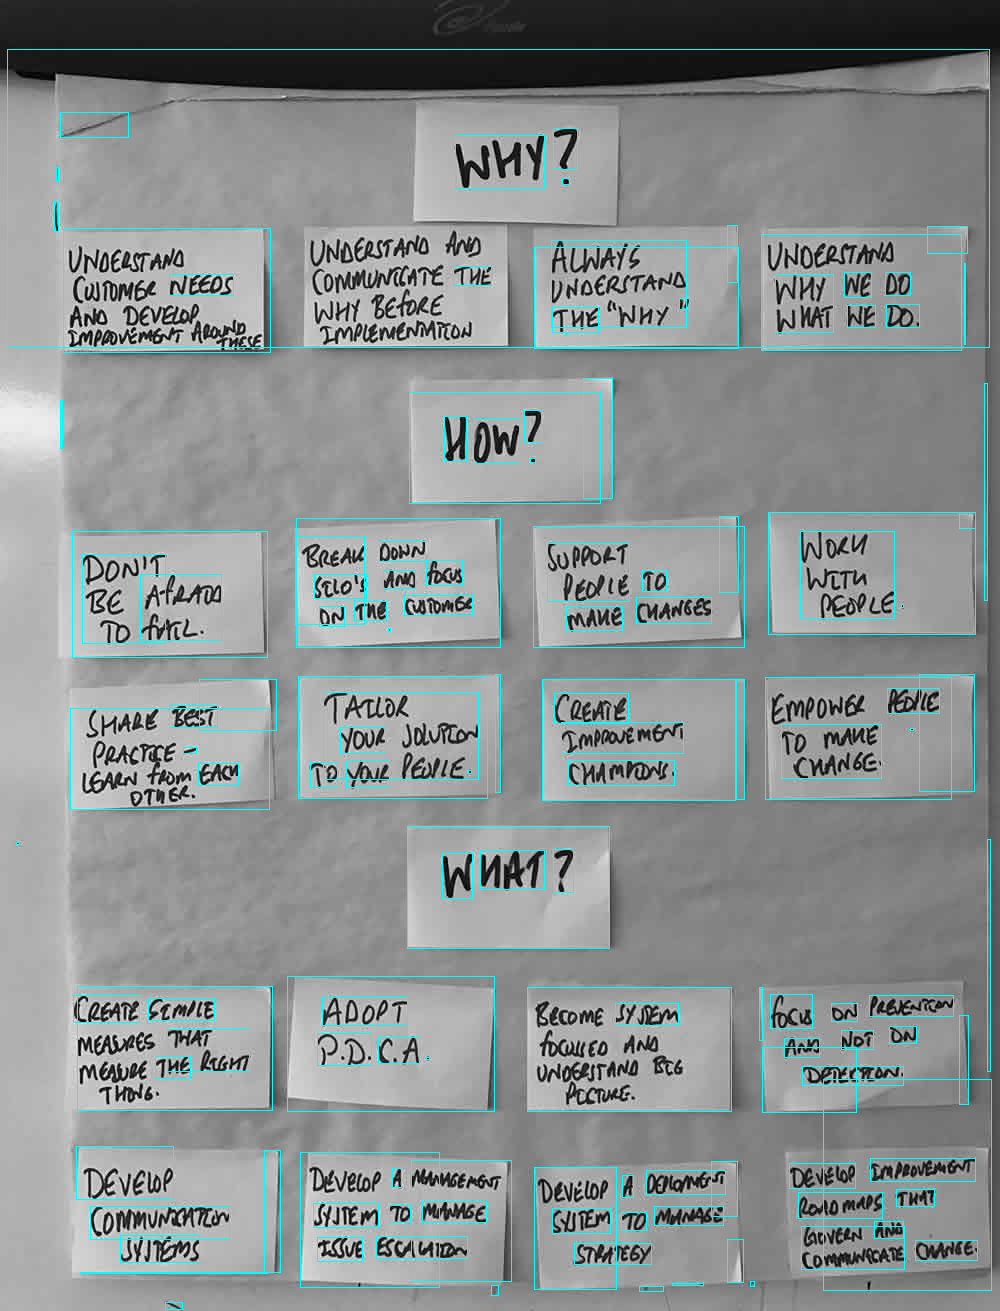 WHY?
UNDERSTAND
CUSTOMER NEEDS
AND DEVELOP
IMPROVEMENT AROUND
THESE
UNDERSTAND AND
COMMUNICATE THE
WHY BEFORE
IMPLEMENTATION
ALWAYS
UNDERSTAND
THE "WHY"
UNDERSTAND
WHY WE DO
WHAT WE DO.
HOW?
DON'T
BE AFRAID
TO FAIL.
BREAK DOWN
SILO'S AND FOCUS
ON THE CUSTOMER
SUPPORT
PEOPLE TO
MAKE CHANGES
WORK
WITH
PEOPLE
SHARE BEST
PRACTICE -
LEARN FROM EACH
OTHER.
TAILOR
YOUR SOLUTION
TO YOUR PEOPLE.
CREATE
IMPROVEMENT
CHAMPIONS.
EMPOWER PEOPLE
TO MAKE
CHANGE.
WHAT?
CREATE SIMPLE
MEASURES THAT
MEASURE THE RIGHT
THING.
ADOPT
P.D.C.A.
BECOME SYSTEM
FOCUSED AND
UNDERSTAND BIG
PICTURE.
FOCUS ON PREVENTION
AND NOT ON
DETECTION.
DEVELOP
COMMUNICATION
SYSTEMS
DEVELOP A MANAGEMENT
SYSTEM TO MANAGE
ISSUE ESCALATION
DEVELOP A DEPLOYMENT
SYSTEM TO MANAGE
STRATEGY
DEVELOP IMPROVEMENT
ROADMAPS THAT
GOVERN AND
COMMUNICATE CHANGE.